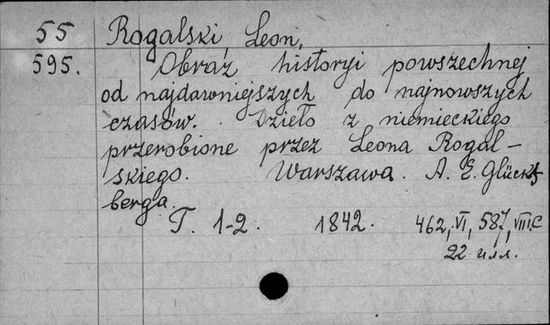 55 Rogalski Leon,
595. Obraz historyi powszechnej
od najdawniejszych do najnowszych
czasów. Dzieło z niemieckiego
przerobione przez Leona Rogal-
skiego. Warszawa. A. E. Glücks
berga.
T. 1-2. 1842. 462, VI, 587, VIII c
22 илл.